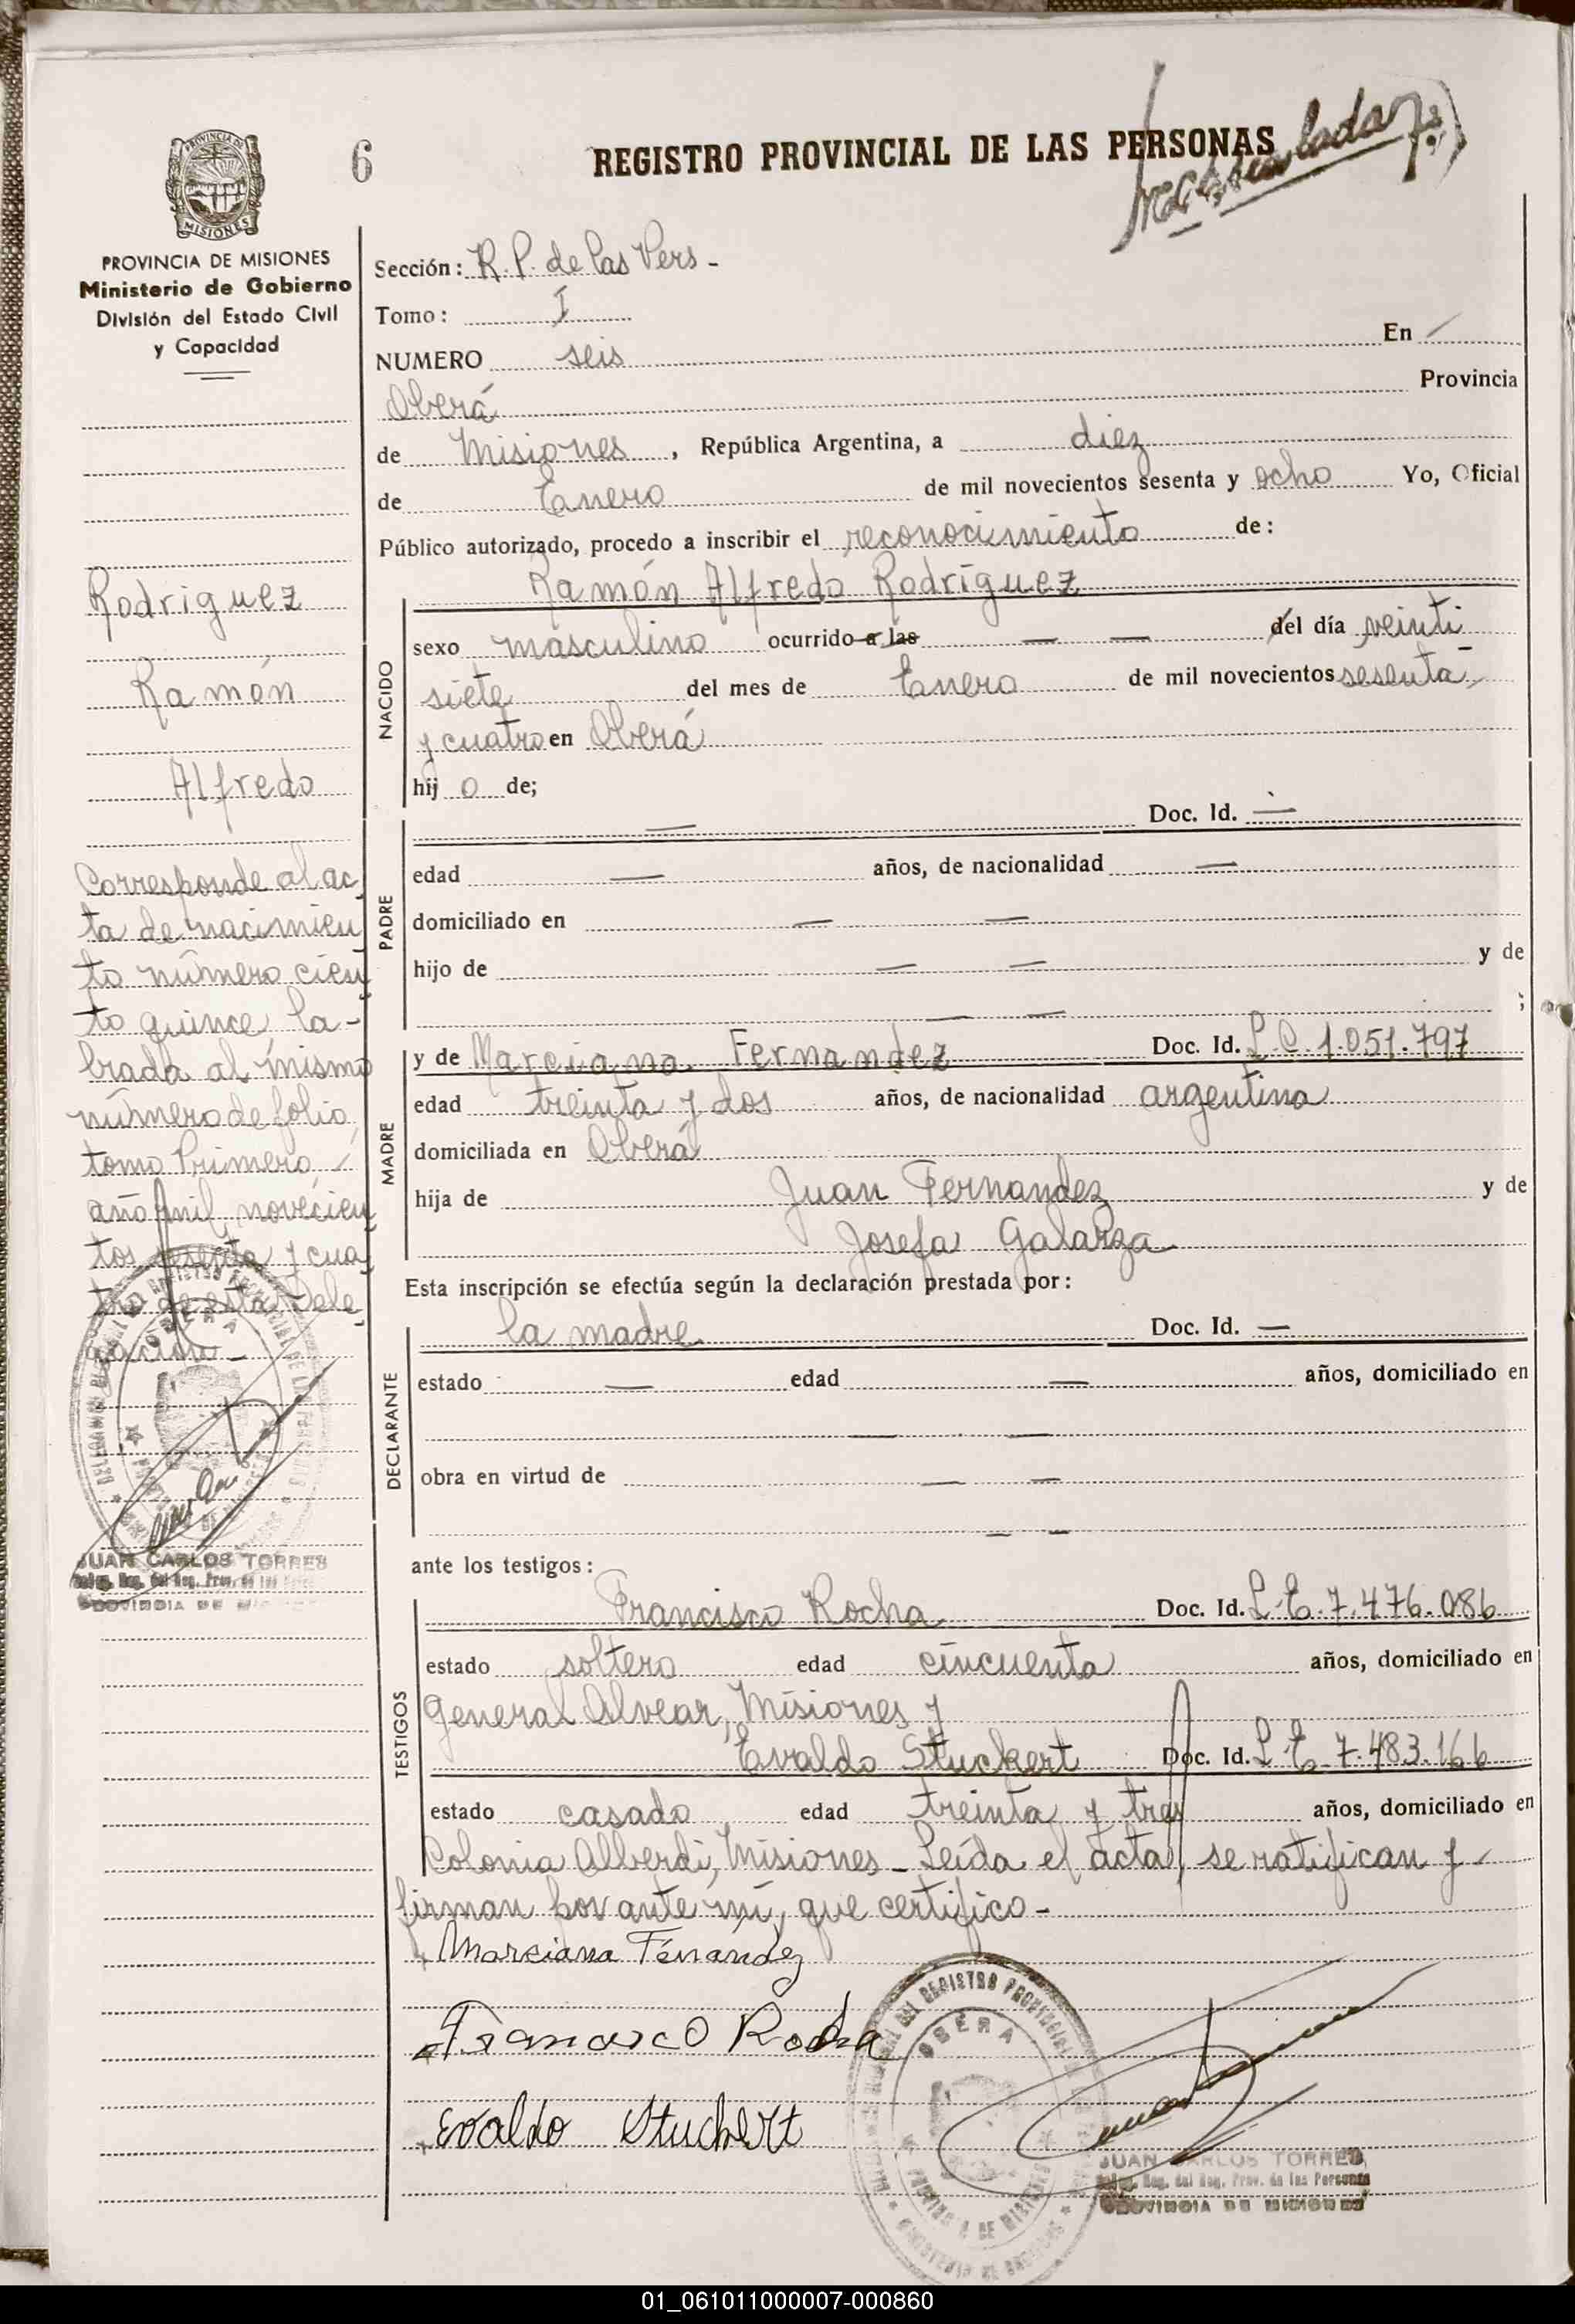 6
REGISTRO PROVINCIAL DE LAS PERSONAS
PROVINCIA DE
MISIONES
PROVINCIA DE MISIONES
Ministerio de Gobierno
División del Estado Civil
y Capacidad
Sección: R. P. de las Pers -
Tomo: I
NUMERO seis En
Oberá Provincia
de Misiones, República Argentina, a diez
de Enero de mil novecientos sesenta y ocho Yo, Oficial
Público autorizado, procedo a inscribir el reconocimiento de:
Ramón Alfredo Rodríguez
NACIDO
sexo masculino ocurrido a las — — del día veinti
siete del mes de Enero de mil novecientos sesenta
y cuatro en Oberá
hij o de;
PADRE
— Doc. Id. —
edad — años, de nacionalidad —
domiciliado en — —
hijo de — — y de
— — ;
MADRE
y de Marciana Fernandez Doc. Id. L.C. 1.051.797
edad treinta y dos años, de nacionalidad argentina
domiciliada en Oberá
hija de Juan Fernandez y de
Josefa Galarza
Esta inscripción se efectúa según la declaración prestada por:
DECLARANTE
la madre Doc. Id. —
estado — edad — años, domiciliado en
— —
obra en virtud de — —
— —
ante los testigos:
TESTIGOS
Francisco Rocha Doc. Id. L.E. 7.476.086
estado soltero edad cincuenta años, domiciliado en
General Alvear, Misiones y
Evaldo Stuckert Doc. Id. L.E. 7.483.166
estado casado edad treinta y tres años, domiciliado en
Colonia Alberdi, Misiones - Leída el acta, se ratifican y
firman por ante mí, que certifico -
Marciana Fernandez
Francisco Rocha
Evaldo Stuckert
OBERA
JUAN CARLOS TORRES
Deleg. Reg. del Reg. Prov. de las Personas
PROVINCIA DE MISIONES
Rodriguez
Ramón
Alfredo
Corresponde al ac
ta de nacimien
to número cien
to quince, la-
brada al mismo
número de folio
tomo Primero
año mil novecien
tos sesenta y cua
tro de esta Dele
gación -
OBERA
JUAN CARLOS TORRES
Deleg. Reg. del Reg. Prov. de las
PROVINCIA DE
01_061011000007-000860